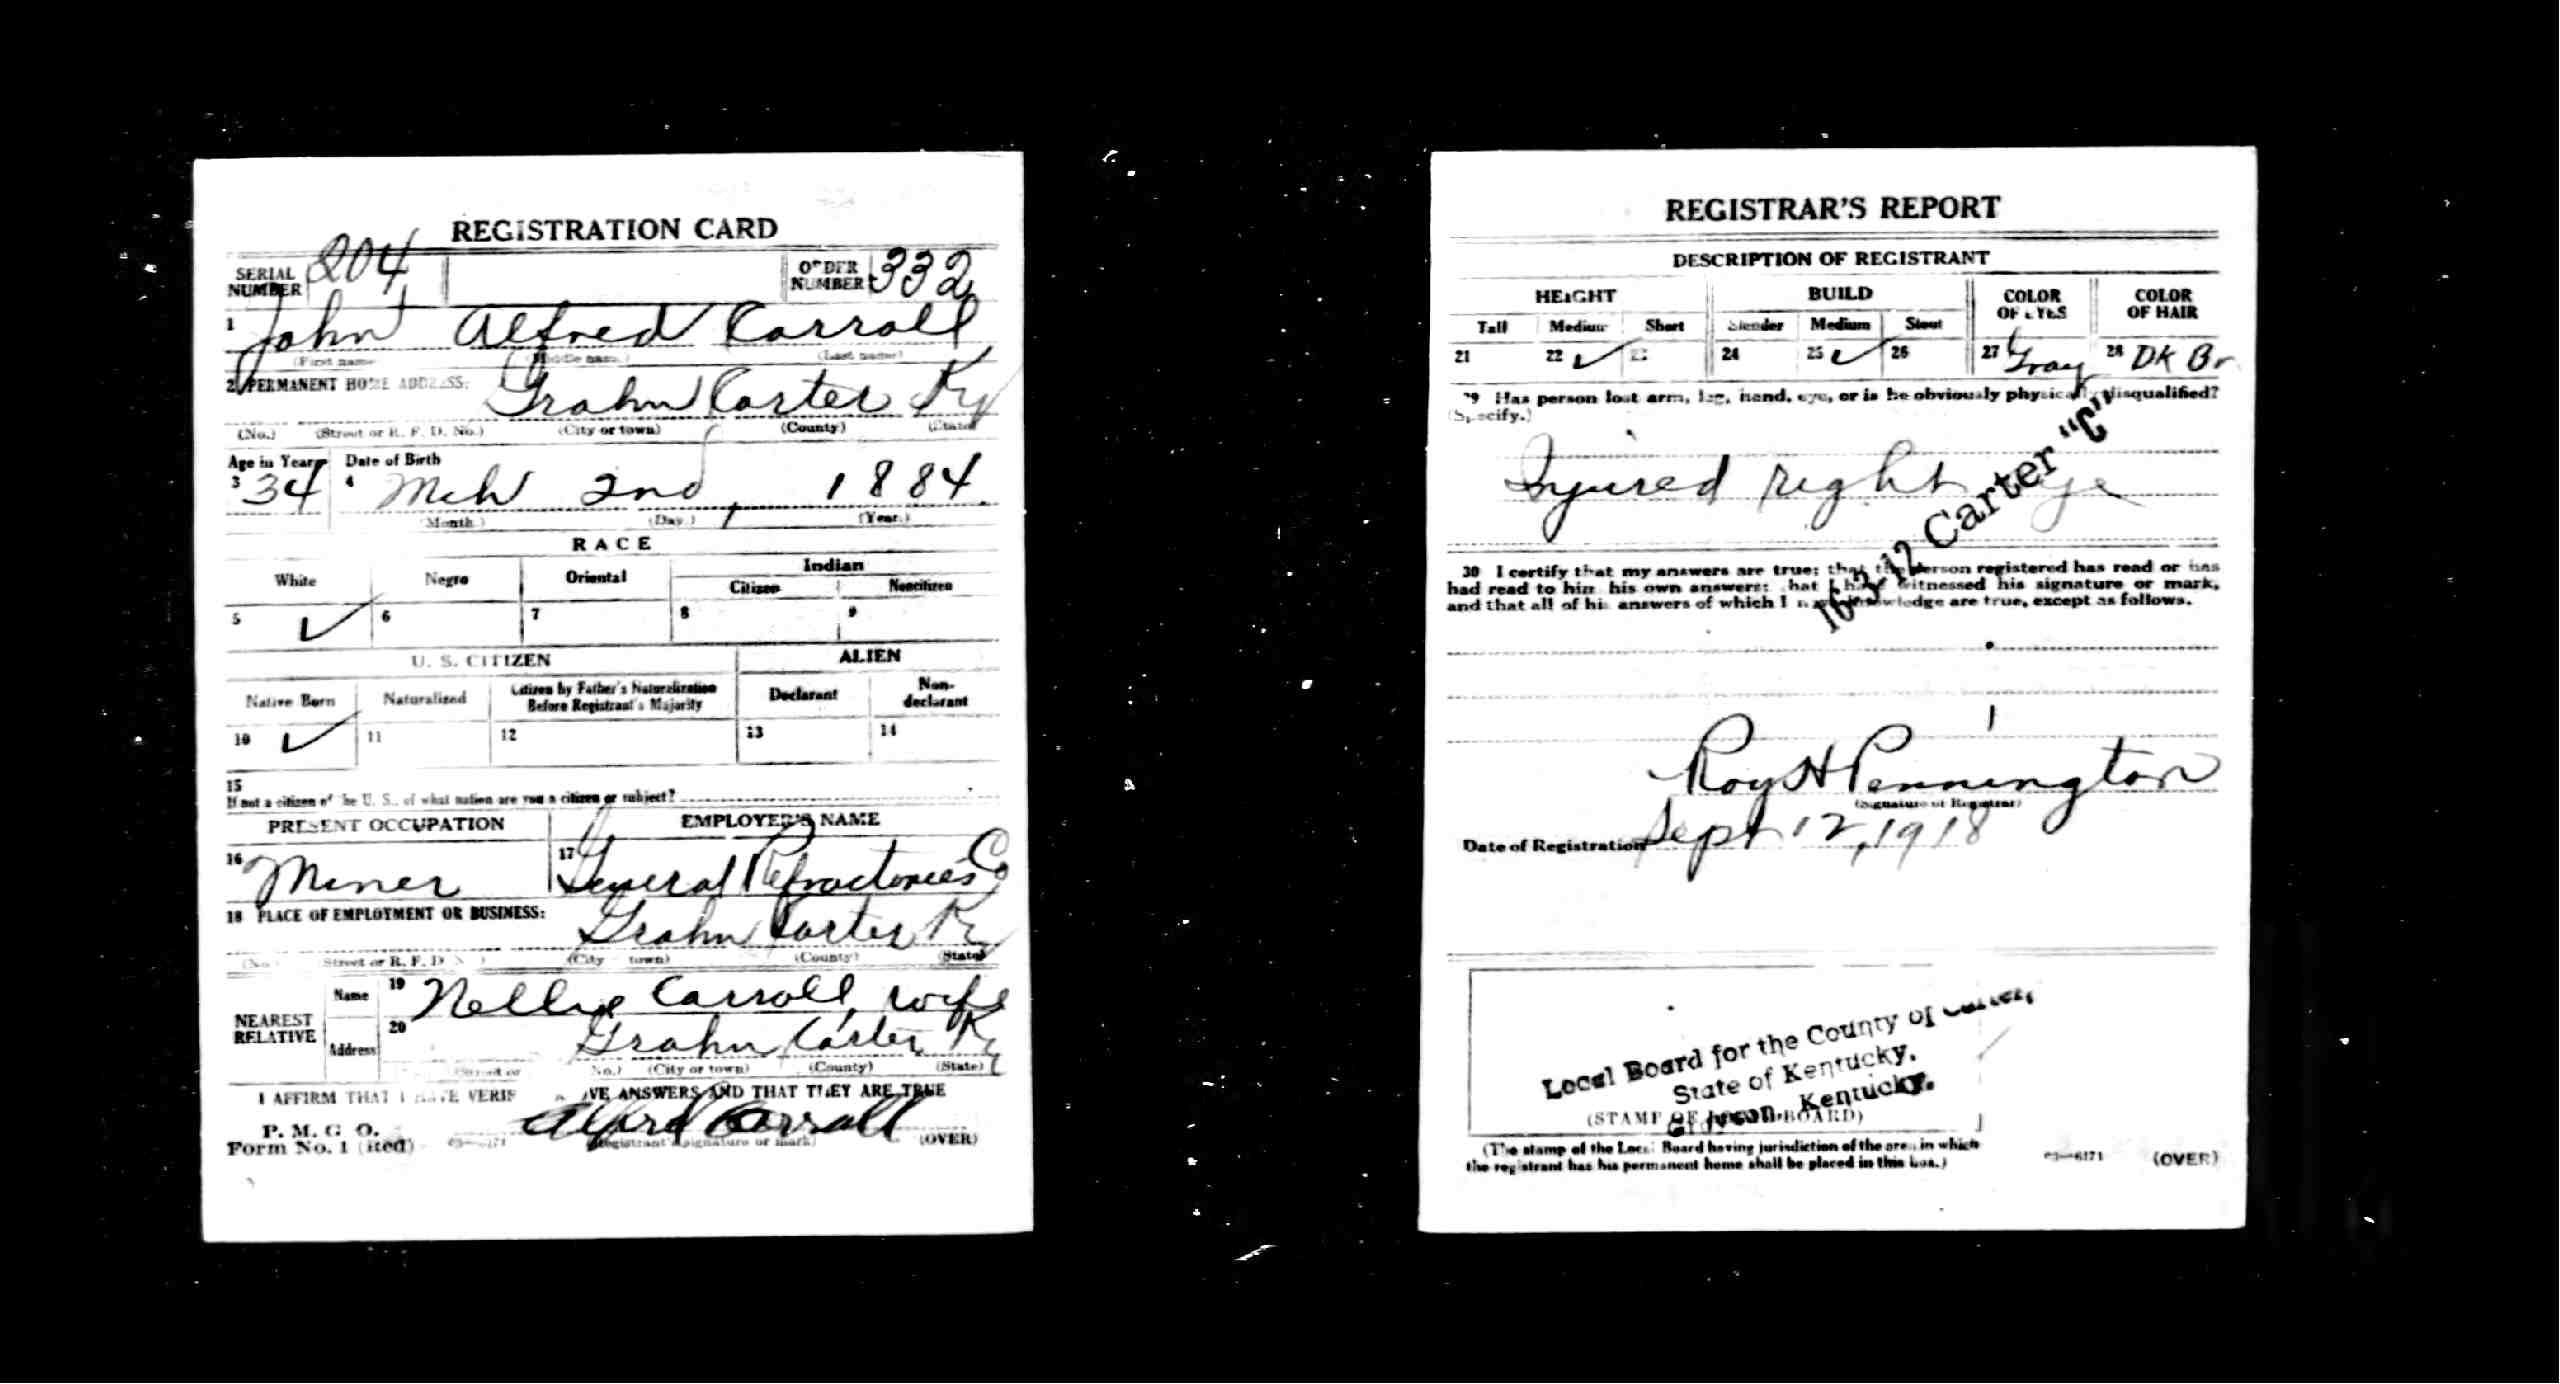 REGISTRATION CARD
SERIAL NUMBER 204 ORDER NUMBER 332
1 John Alfred Carroll
(First name) (Middle name) (Last name)
2 PERMANENT HOME ADDRESS:
Grahn Carter Ky
(No.) (Street or R. F. D. No.) (City or town) (County) (State)
Age in Years Date of Birth
3 34 4 Mch 2nd, 1884
(Month.) (Day.) (Year.)
RACE
White Negro Oriental Indian
Citizen Noncitizen
5 ✓ 6 7 8 9
U. S. CITIZEN ALIEN
Native Born Naturalized Citizen by Father's Naturalization Before Registrant's Majority Declarant Non-declarant
10 ✓ 11 12 13 14
15
If not a citizen of the U. S., of what nation are you a citizen or subject?
PRESENT OCCUPATION EMPLOYER'S NAME
16 Miner 17 General Refractories Co
18 PLACE OF EMPLOYMENT OR BUSINESS:
Grahn Carter Ky
(No.) Street or R. F. D (City town) (County) (State)
NEAREST RELATIVE Name 19 Nellie Carroll, wife
Address 20 Grahn Carter Ky
No.) (City or town) (County) (State)
I AFFIRM THAT I HAVE VERIF VE ANSWERS AND THAT THEY ARE TRUE
P. M. G. O.
Form No. 1 (Red) Alfred Carroll
(Registrant's signature or mark) (OVER)
REGISTRAR'S REPORT
DESCRIPTION OF REGISTRANT
HEIGHT BUILD COLOR OF EYES COLOR OF HAIR
Tall Medium Short Slender Medium Stout
21 22 ✓ 23 24 25 ✓ 26 27 Gray 28 DK Br
29 Has person lost arm, leg, hand, eye, or is he obviously physically disqualified?
(Specify.)
Injured right eye
16-3-12 Carter "C"
30 I certify that my answers are true; that the person registered has read or has
had read to him his own answers; that I have witnessed his signature or mark,
and that all of his answers of which I have knowledge are true, except as follows.
Roy H Pennington
(Signature of Registrar)
Date of Registration Sept 12, 1918
Local Board for the County of Carter,
State of Kentucky.
Kentucky.
(STAMP OF LOCAL BOARD)
(The stamp of the Local Board having jurisdiction of the area in which
the registrant has his permanent home shall be placed in this box.)
03—6171 (OVER)